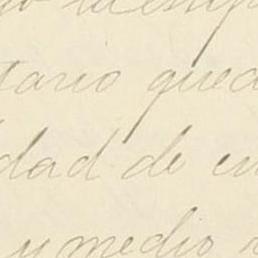 tario queda
dad de en
y medio